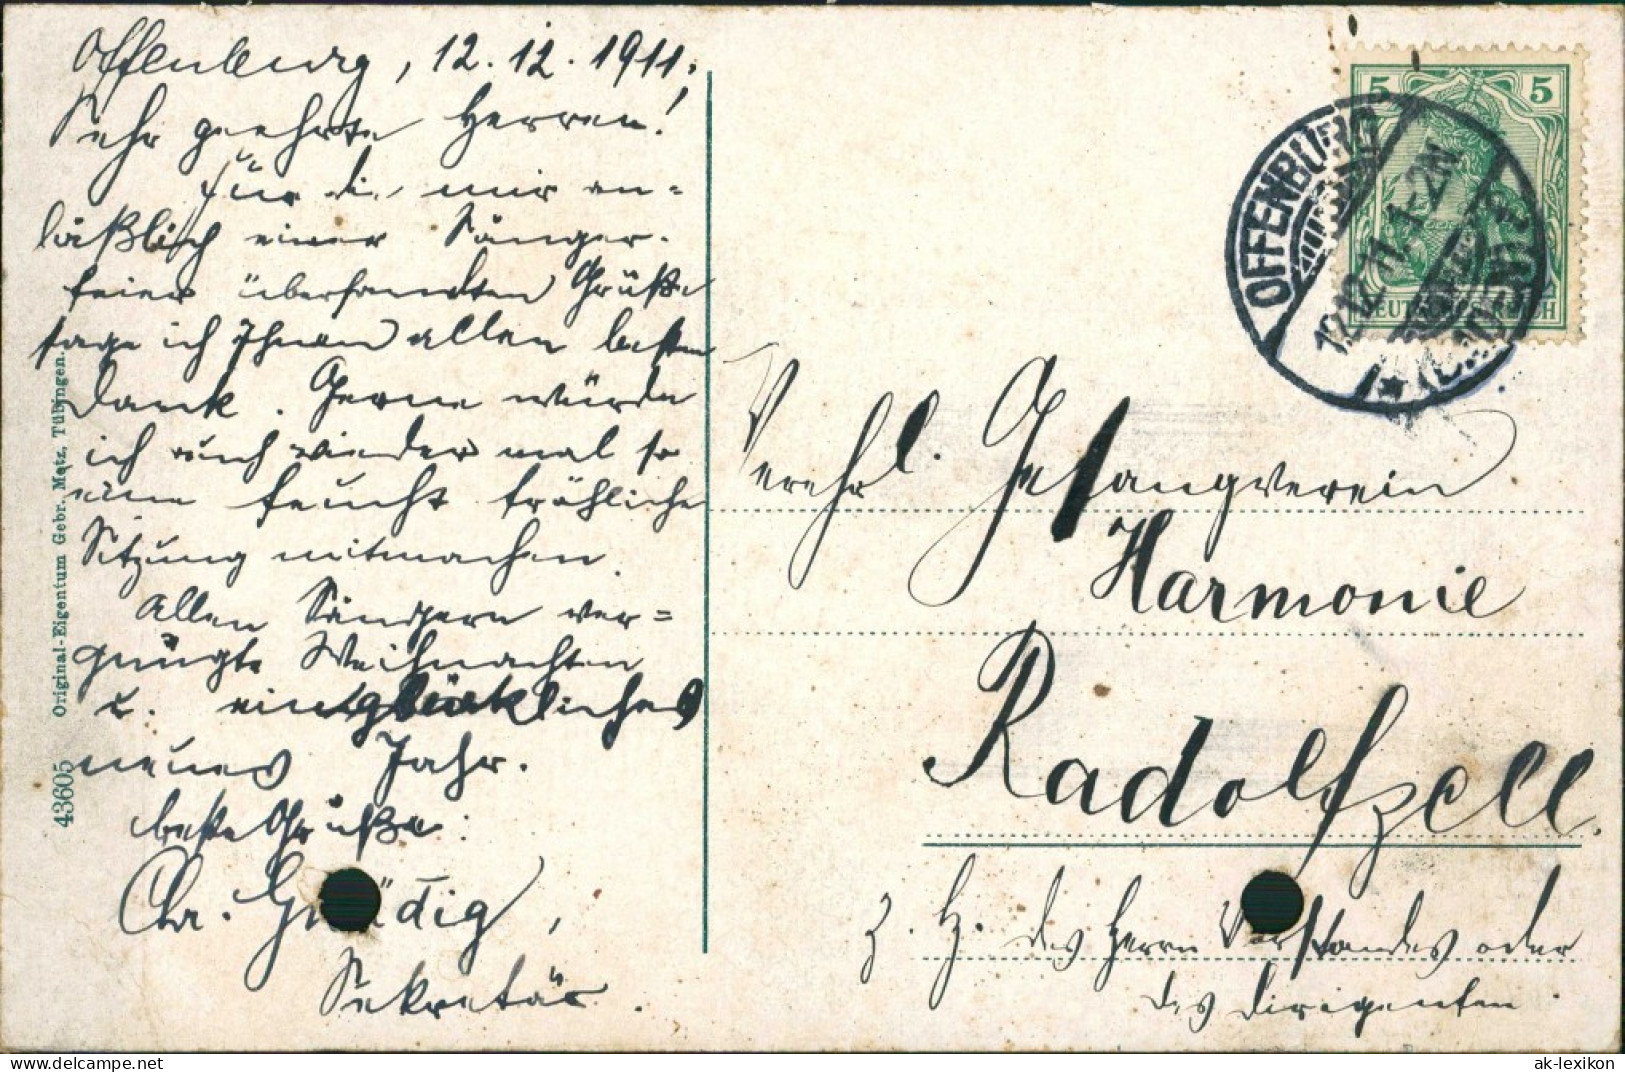 Offenburg, 12.12.1911.
Sehr geehrte Herren!
Für die mir an=
läßlich einer Sänger-
feier übersandten Grüße
sage ich Ihnen allen besten
Dank. Gerne würde
ich auch wieder mal so
eine feucht fröhliche
Sitzung mitmachen.
Allen Sängern ver=
gnügte Weihnachten
u. ein glückliches
neues Jahr.
beste Grüße:
Chr. dig,
Sekretär.
43605 Original-Eigentum Gebr. Metz, Tübingen.
5 5
DEUTSCHES REICH
OFFENBURG
12.12.11.1-2N
* (BADEN)
Verehrl. Gesangverein
Harmonie
Radolfzell.
z. H. des Herrn Vorstandes oder
des Dirigenten.
delcampe.net
ak-lexikon